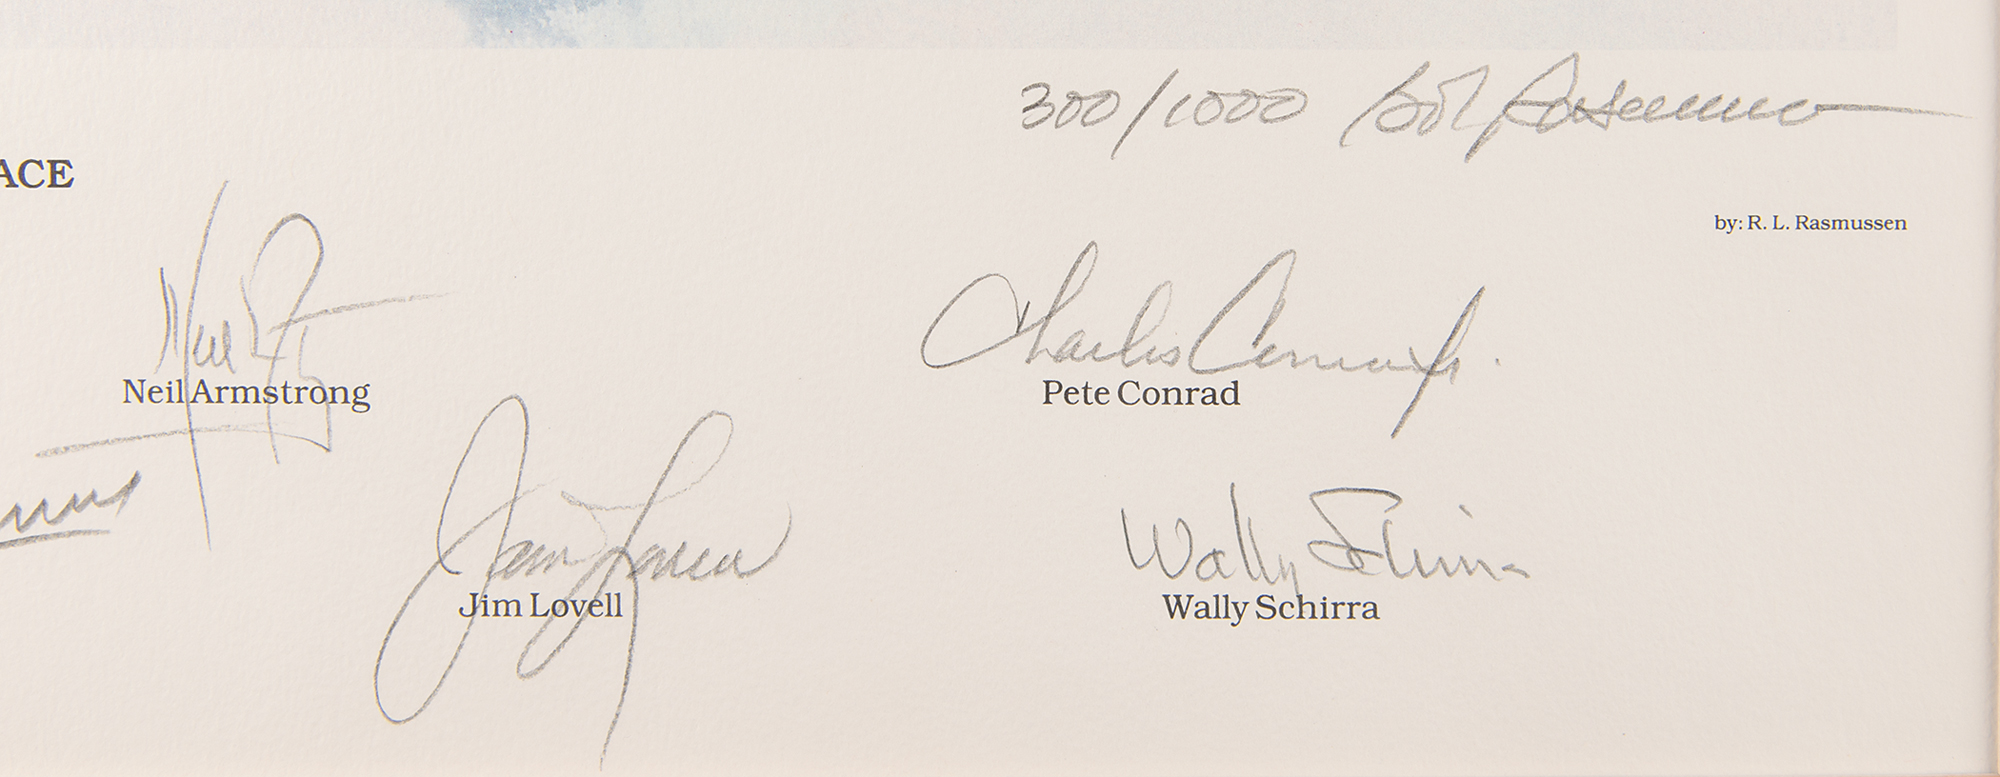 300/1000 Bob Rasmussen
ACE
by: R. L. Rasmussen
Neil Armstrong
Charles Conrad Jr.
Neil Armstrong
Pete Conrad
Jim Lovell
Wally Schirra
Jim Lovell
Wally Schirra